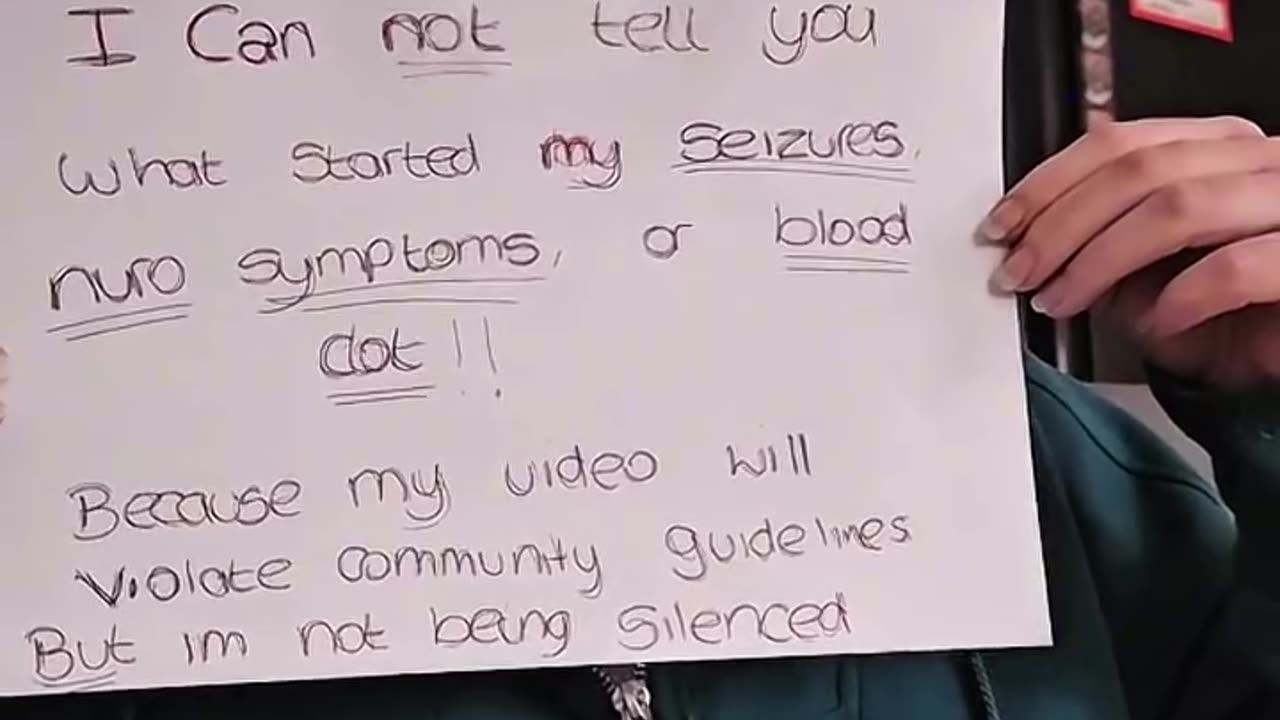 I Can not tell you
What started my Seizures,
nuro symptoms, or blood
clot!!
Because my video will
violate community guidelines
But im not being silenced